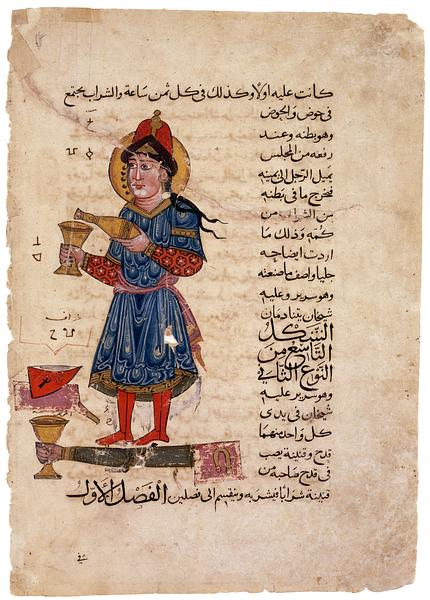 كانت عليه اولا وكذلك فى كل ثمن ساعة والشراب يجتمع
فى حوض والحوض
وهو بطنه وعند
رفعه من المجلس
يميل الرجل الى يمينه
فيخرج ما فى بطنه
من الشراب من
كمه وذلك ما
اردت ايضاحه
جليا واصف ما صنعته
وهو سرير وعليه
شيخان يتنادمان
الشكل
التاسع من
النوع الثانى
وهو سرير عليه
شيخان فى يدى
كل واحد منهما
قدح وقنينة يصب
فى قدح صاحبه من
قنينة شرابا فيشربه وينقسم الى فصلين الفصل الأول